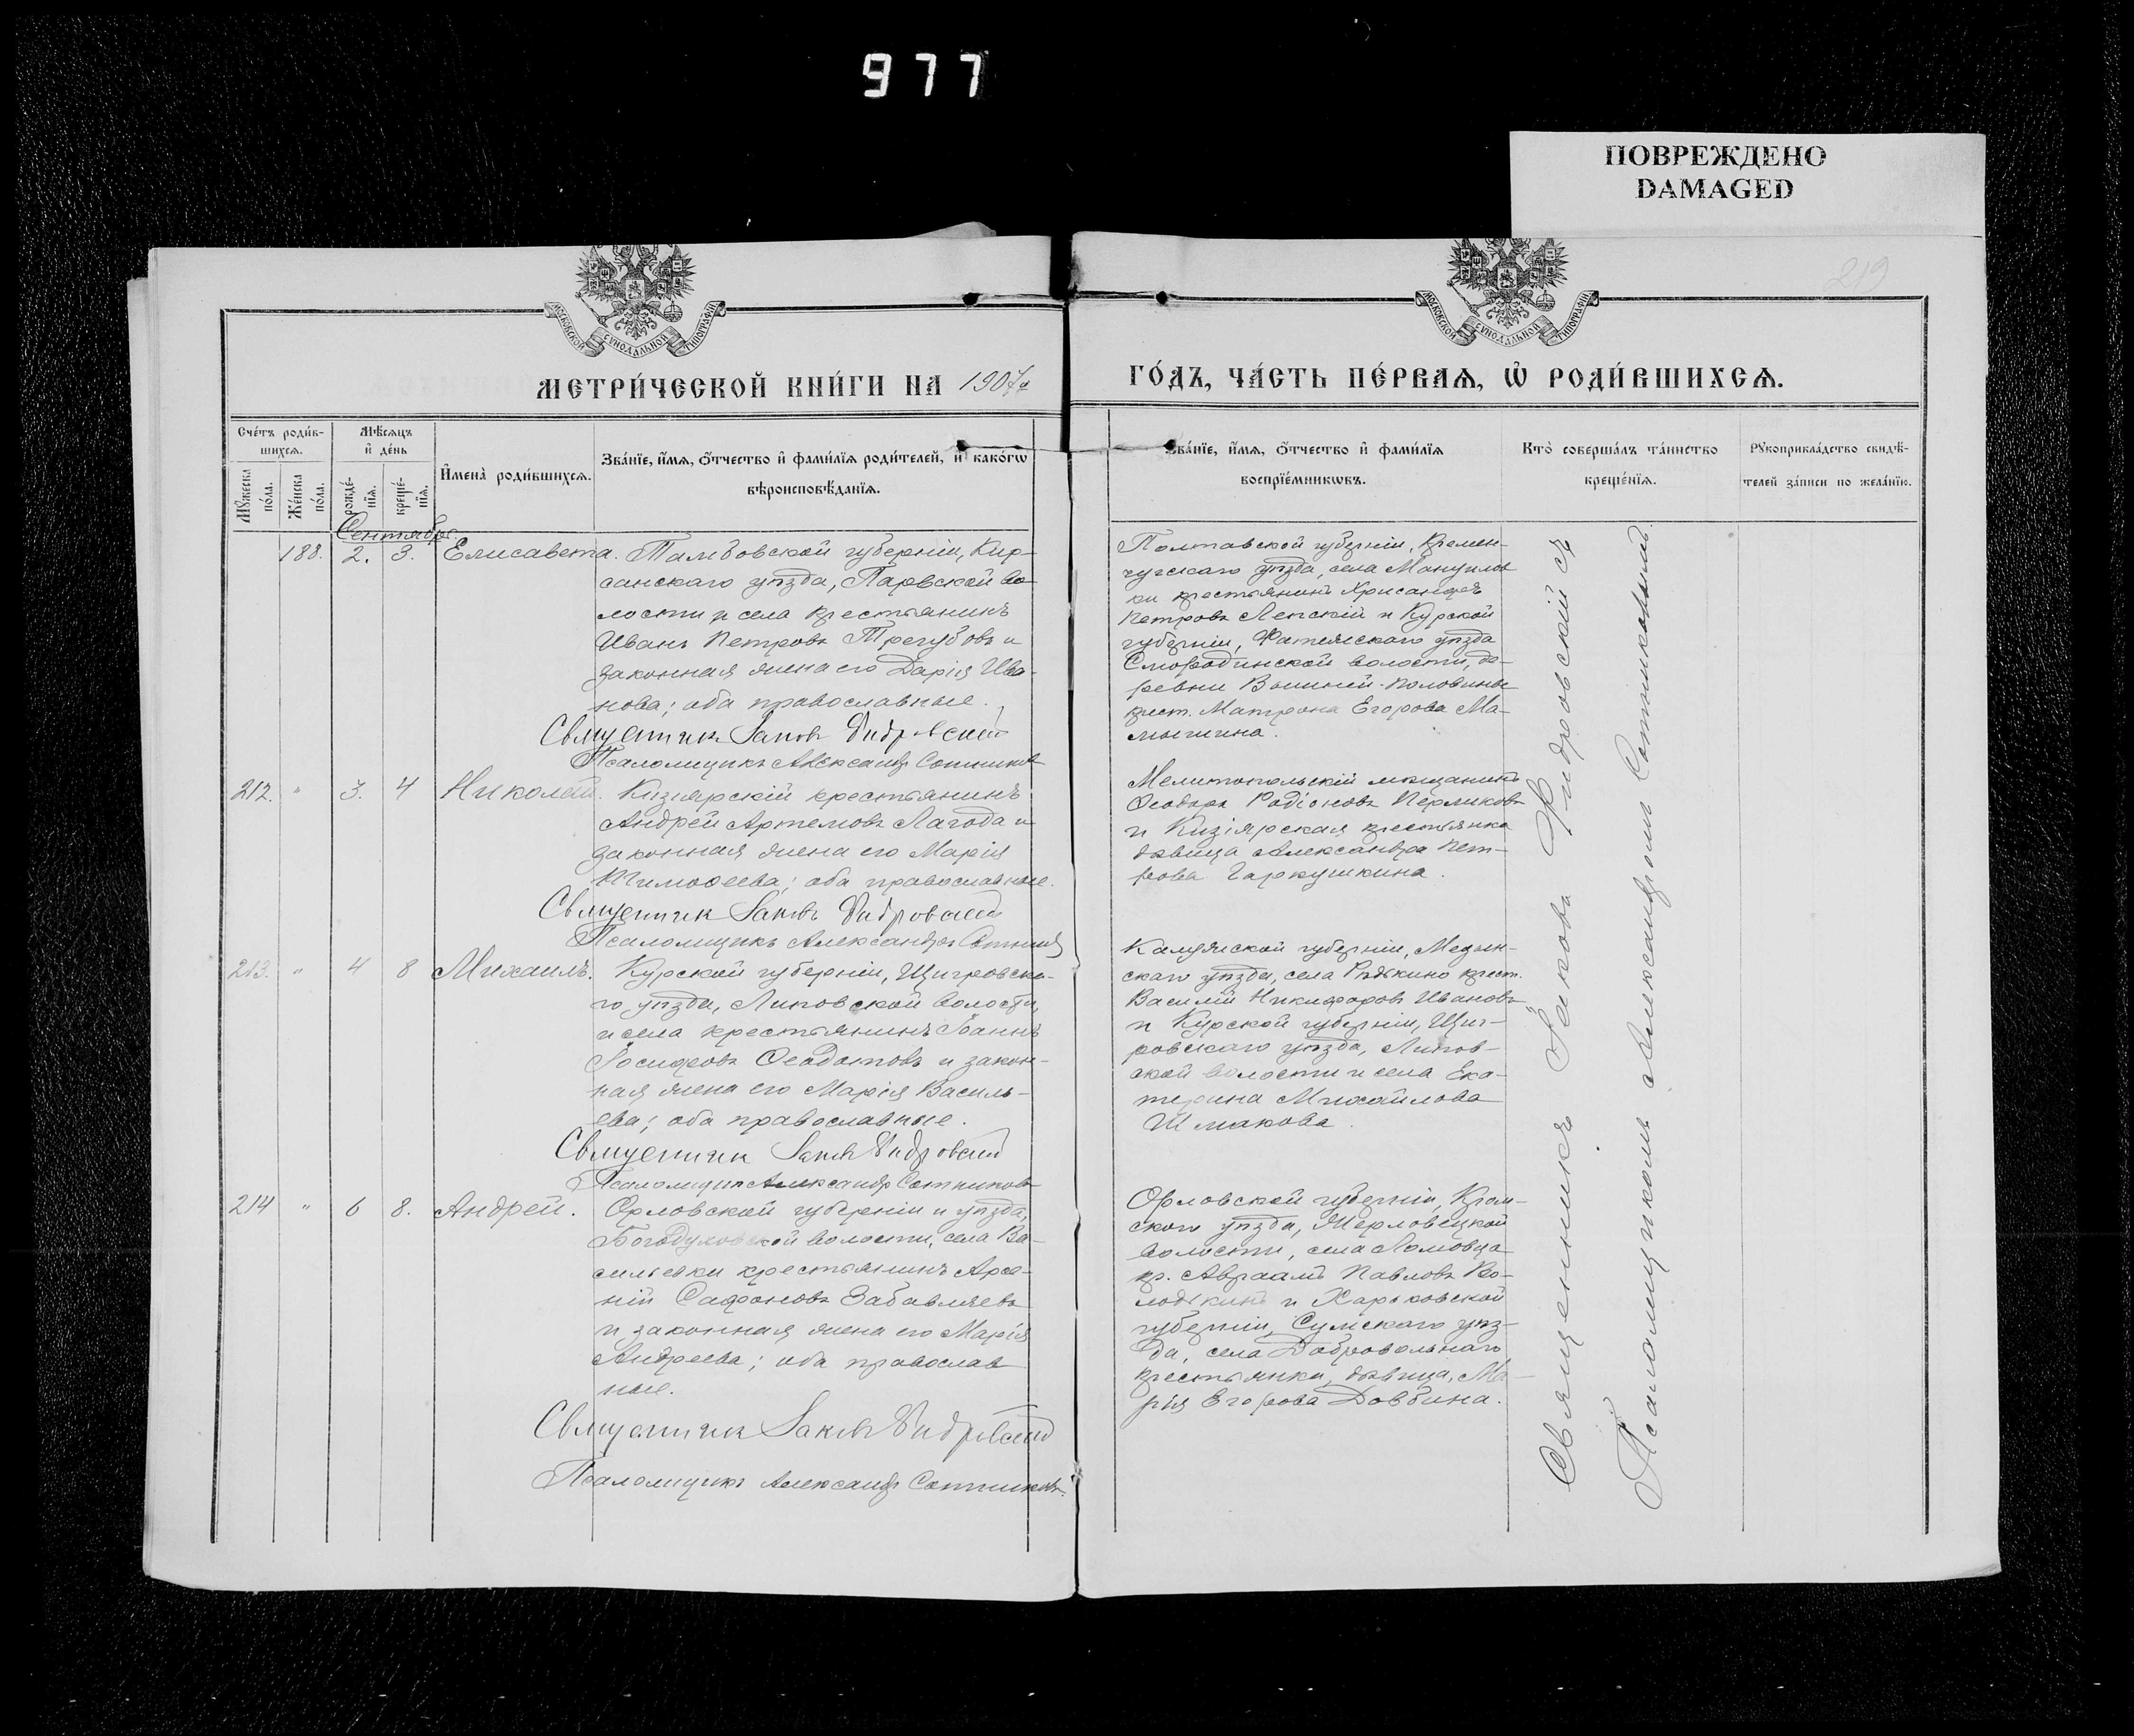 977
ПОВРЕЖДЕНО
DAMAGED
219
МОСКОВСКОЙ СУНОДАЛЬНОЙ ТИПОГРАФІИ
МОСКОВСКОЙ СУНОДАЛЬНОЙ ТИПОГРАФІИ
МЕТРИ́ЧЕСКОЙ КНИ́ГИ НА 1907й
ГО́ДЪ, ЧА́СТЬ ПЕ́РВАѦ, Ѡ҆ РОДИ́ВШИХСѦ.
Сче́тъ роди́в-
шихсѧ.
Мѣ́сѧцъ
и҆ де́нь
Мꙋ́жеска
по́ла.
Же́нска
по́ла.
рожде́-
нїѧ.
креще́-
нїѧ.
И҆мена̀ роди́вшихсѧ.
Зва́нїе, и҆́мѧ, ѻ҆́тчество и҆ фами́лїѧ роди́телей, и҆ како́гѡ
вѣроисповѣ́данїѧ.
Зва́нїе, и҆́мѧ, ѻ҆́тчество и҆ фами́лїѧ
воспрїе́мникѡвъ.
Кто̀ соверша́лъ та́инство
креще́нїѧ.
Рꙋкоприкла́дство свидѣ́-
телей за́писи по жела́нїю.
Сентябрь.
188. 2. 3. Елисавета. Тамбовской губерніи, Кир-
санскаго уѣзда, Паревской во-
лости и села крестьянинъ
Иванъ Петровъ Трегубовъ и
законная жена его Дарія Ива-
нова; оба православные.
Священникъ Іаковъ Видровскій
Псаломщикъ Александръ Сотниковъ
Полтавской губерніи, Кремен-
чугскаго уѣзда, села Мануилов
ки крестьянинъ Хрисанфъ
Петровъ Лепскій и Курской
губерніи, Фатежскаго уѣзда
Смородинской волости, де-
ревни Вышней-Половины
крест. Матрона Егорова Ма-
мыгина.
212. " 3. 4 Николай. Кизіярскій крестьянинъ
Андрей Артемовъ Лагода и
законная жена его Марія
Тимоѳеева; оба православные.
Священникъ Іаковъ Видровскій
Псаломщикъ Александръ Сотников
Мелитопольскій мѣщанинъ
Ѳеодоръ Родіоновъ Перликовъ
и Кизіярская крестьянка
дѣвица Александра Пет-
рова Гаркушкина.
213. " 4 8 Михаилъ. Курской губерніи, Щигровска-
го уѣзда, Липовской волости,
и села крестьянинъ Іоаннъ
Іосифовъ Ѳеодотовъ и закон-
ная жена его Марія Василь-
ева; оба православные.
Священникъ Іаковъ Видровскій
Псаломщикъ Александръ Сотниковъ
Калужской губерніи, Медын-
скаго уѣзда, села Рѣдькино крест.
Василій Никифоровъ Ивановъ
и Курской губерніи, Щиг-
ровскаго уѣзда, Липов-
ской волости и села Ека-
терина Михайлова
Шмакова.
214 " 6 8. Андрей. Орловской губерніи и уѣзда,
Богодуховской волости, села Ва-
сильевки крестьянинъ Арсе-
ній Сафоновъ Забавляевъ
и законная жена его Марія
Андреева; оба православ
ные.
Священникъ Іаковъ Видровскій
Псаломщикъ Александръ Сотниковъ.
Орловской губерніи, Кром-
ского уѣзда, Жерловецкой
волости, села Ломовца
кр. Авраамъ Павловъ Во-
лодькинъ и Харьковской
губерніи, Сумскаго уѣз-
да, села Добровольнаго
крестьянка, дѣвица, Ма-
рія Егорова Довбина.
Священникъ Іаковъ Видровскій съ
Псаломщикомъ Александромъ Сотниковымъ.